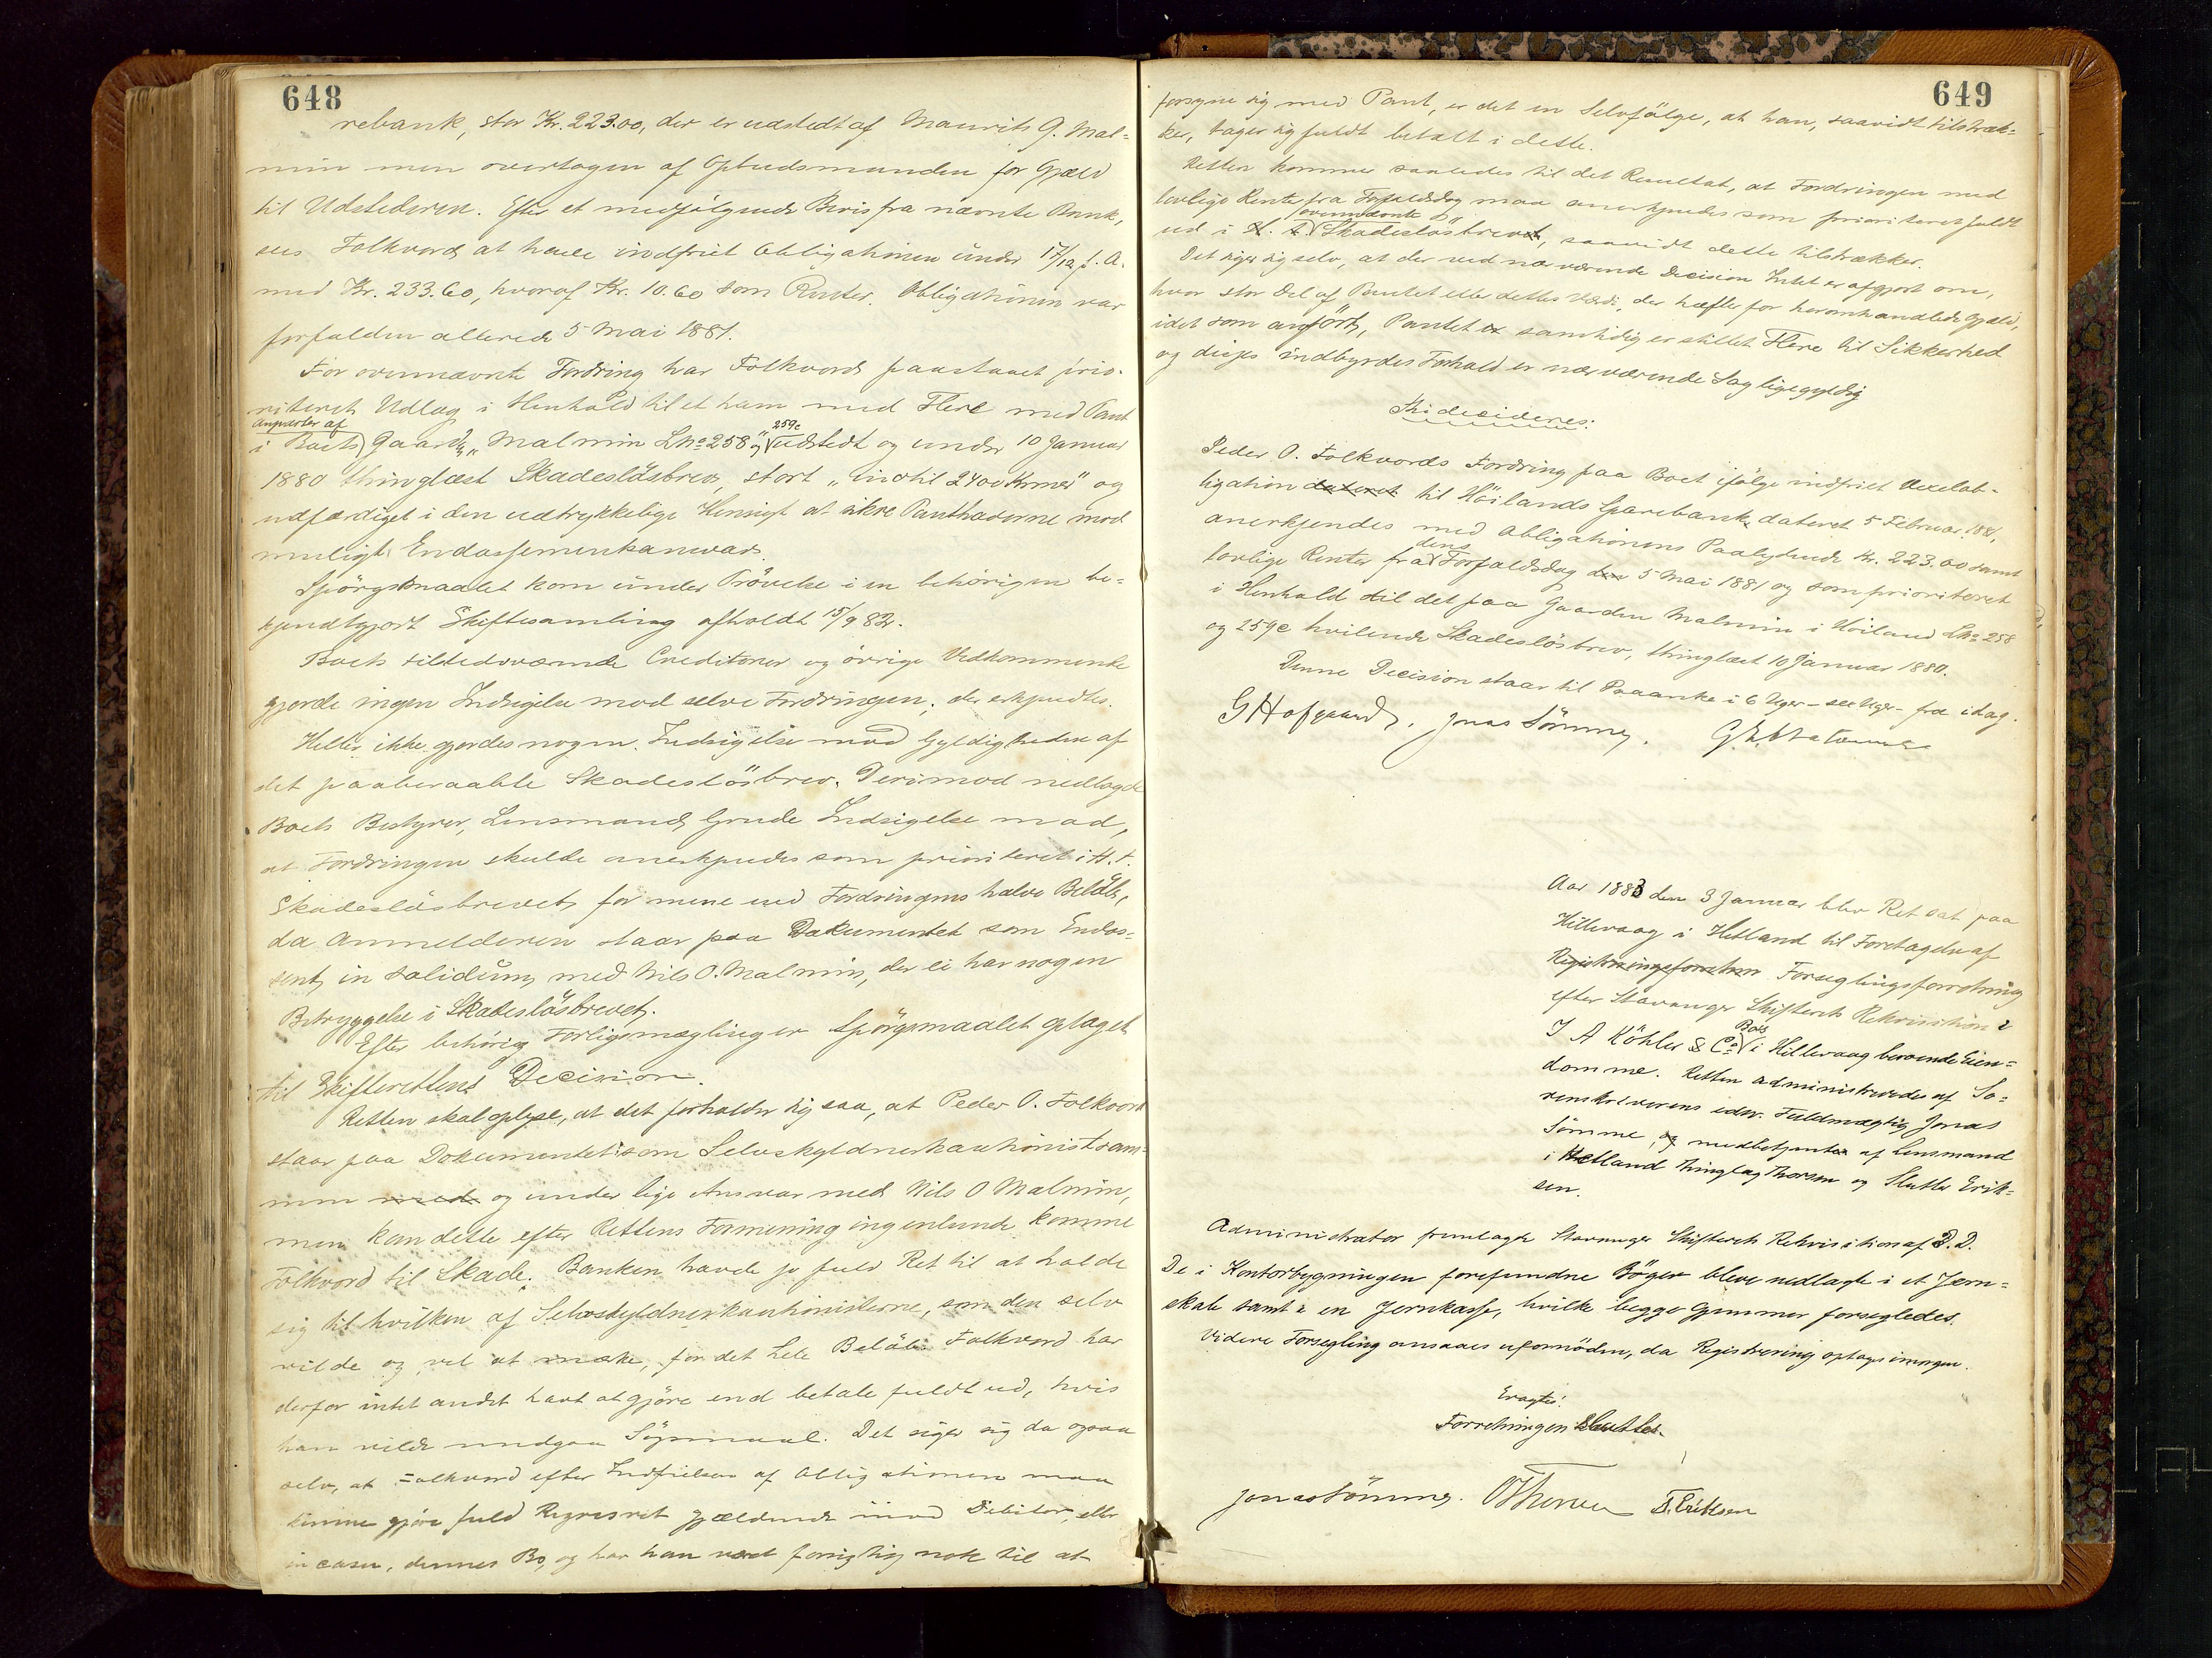 648
rebank, stor Kr. 223.00, der er udstedt af Maurits G. Mal-
min men overtagen af Opbudsmanden for Gjæld
til Udstederen. Efter et medfølgende Bevis fra nævnte Bank,
sees Folkvord at have indfriet Obligationen under 17/12 f. A.
med Kr. 233.60, hvoraf Kr. 10.60 som Renter. Obligationen var
forfalden allerede 5 Mai 1881.
For ovennævnte Fordring har Folkvord paastaaet prio-
riteret Udlæg i Henhold til et ham med Flere med Pant
Anparter af
i Boets Gaard „Malmin Lno 258 og 259c udstedt og under 10 Januar
1880 thinglæst Skadesløsbrev, stort „indtil 2400 Kroner" og
udfærdiget i den udtrykkelige Hensigt at sikre Panthaverne mod
muligt Endossementsansvar.
Spørgsmaalet kom under Prøvelse i en behørigen be-
kjendtgjort Skiftesamling afholdt 15/9 82.
Boets tilstedeværende Creditorer og øvrige Vedkommende
gjorde ingen Indsigelse mod selve Fordringen, der erkjendtes.
Heller ikke gjordes nogen Indsigelse mod Gyldigheden af
det paaberaabte Skadesløsbrev. Derimod nedlagde
Boets Bestyrer, Lensmand Grude Indsigelse mod,
at Fordringen skulde anerkjendes som prioriteret i H. t.
Skadesløsbrevet for mere end Fordringens halve Beløb,
da Anmelderen staar paa Dokumentet som Endos-
sent, in solidum, med Nils O. Malmin, der ei har nogen
Betryggelse i Skadesløsbrevet.
Efter behørig Forligsmægling er Spørgsmaalet optaget
til Skifterettens Decision.
Retten skal oplyse, at det forholder sig saa, at Peder O. Folkvord
staar paa Dokumentet som Selvskyldnerkautionist sam-
men med og under lige Ansvar med Nils O Malmin,
men kan dette efter Rettens Formening ingenlunde komme
Folkvord til Skade. Banken havde jo fuld Ret til at holde
sig til hvilken af Selvskyldnerkautionisterne, som den selv
vilde og vel at mærke, for det hele Beløb. Folkvord har
derfor intet andet havt at gjøre end betale fuldt ud, hvis
han vilde undgaa Søgsmaal. Det siger sig da ogsaa
selv, at Folkvord efter Indfrielsen af Obligationen maa
kunne gjøre fuld Regresret gjældende imod Debitor, eller
in casu, dennes Bo, og har han været forsigtig nok til at
649
forsyne sig med Pant, er det en Selvfølge, at han, saavidt tilstræk-
ker, tager sig fuldt betalt i dette.
Retten kommer saaledes til det Resultat, at Fordringen med
lovlige Renter fra Forfaldsdag maa anerkjendes som prioriteret fuldt
ovennævnte
ud i H. t. Skadesløsbrevet, saavidt dette tilstrækker.
Det siger sig selv, at der ved nærværende Decision Intet er afgjort om,
hvor stor Del af Pantet eller dettes Værdi, der hæfter for heromhandlede Gjæld,
idet som anført, Pantet er samtidig er stillet Flere til Sikkerhed
og disses indbyrdes Forhold er nærværende Sag ligegyldig
Thi decideres:
Peder O. Folkvords Fordring paa Boet ifølge indfriet Vexelob-
ligation dateret til Høilands Sparebank, dateret 5 Februar 1881,
anerkjendes med Obligationens Paalydende Kr. 223.00 samt
dens
lovlige Renter fra Forfaldsdag den 5 Mai 1881 og som prioriteret
i Henhold til det paa Gaarden Malmin i Høiland Lno 258
og 259c hvilende Skadesløsbrev, thinglæst 10 Januar 1880.
Denne Decision staar til Paaanke i 6 Uger – sex Uger – fra idag.
G Hofgaard. Jonas Sømme.
Aar 1883 den 3 Januar blev Ret sat paa
Hillevaag i Hetland til Foretagelse af
Registreringsforretn Forseglingsforretning
efter Stavanger Skifterets Rekvisition i
Bos
J A Köhler & Co i Hillevaag beroende Eien-
domme. Retten administreredes af So-
renskriverens edsv. Fuldmægtig Jonas
Sømme, og medbetjentes af Lensmand
i Hetland Thinglag Thorsen og Slutter Erik-
sen.
Administrator fremlagde Stavanger Skifterets Rekvisition af D. D.
De i Kontorbygningen forefundne Bøger bleve nedlagte i et Jern-
skab samt i en Jernkasse, hvilke begge Gjemmer forsegledes.
Videre Forsegling ansaaes ufornøden, da Registrering optages imorgen.
Eragtes:
Forretningen sluttes.
Jonas Sømme. O Thorsen E. Eriksen